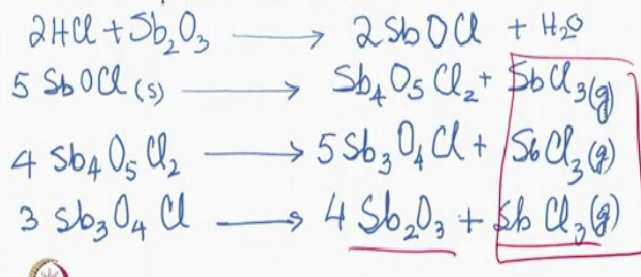 2HCl + Sb₂O₃ ⟶ 2SbOCl + H₂O
5 SbOCl (s) ⟶ Sb₄O₅Cl₂ + SbCl₃(g)
4 Sb₄O₅Cl₂ ⟶ 5 Sb₃O₄Cl + SbCl₃(g)
3 Sb₃O₄Cl ⟶ 4 Sb₂O₃ + SbCl₃(g)